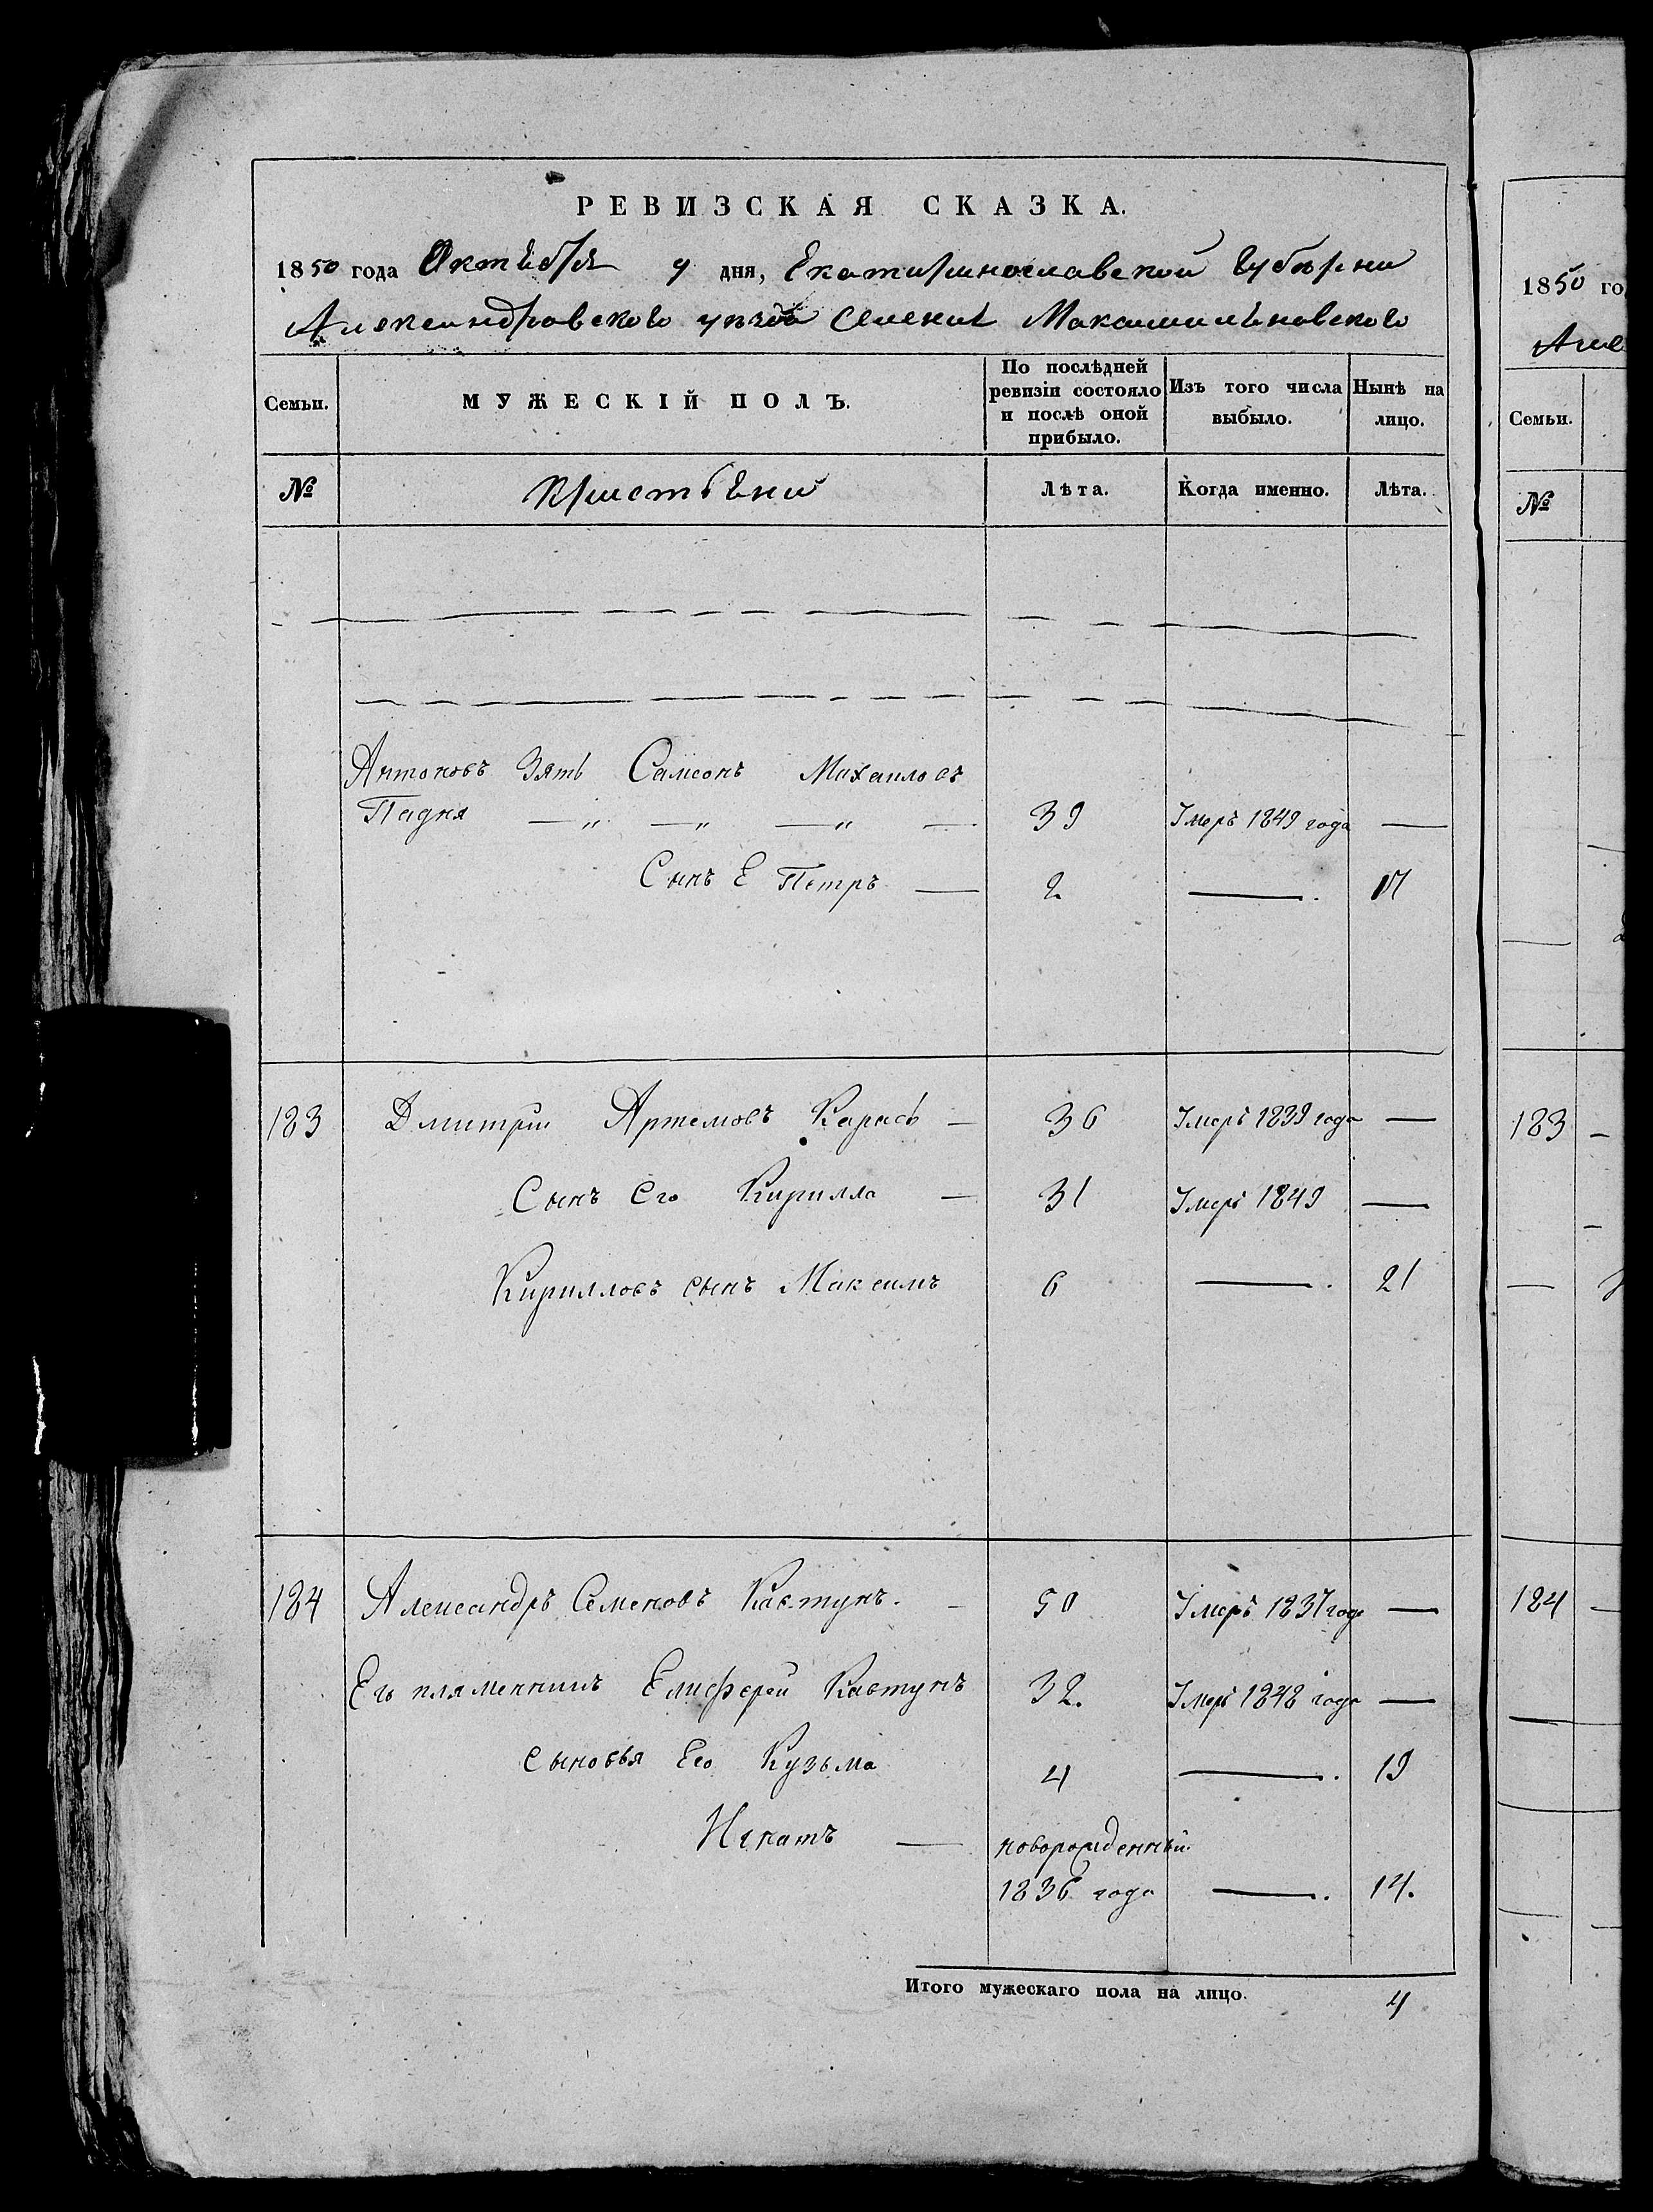 РЕВИЗСКАЯ СКАЗКА.
1850 года Октября 9 дня, Екатеринославской Губерни
Александровского уезда Селения Максимильяновского
Семьи. МУЖЕСКІЙ ПОЛЪ. По послѣдней ревизіи состояло и послѣ оной прибыло. Изъ того числа выбыло. Нынѣ на лицо.
№ Кристьяни Лѣта. Когда именно. Лѣта.
Антоновъ Зять Самсонъ Михаиловъ
Падня — „ — „ — „ — 39 Умеръ 1849 года —
Сынъ Е Петръ — 2 — 17
183 Дмитрій Артемовъ Карась — 36 Умеръ 1839 года —
Сынъ Его Кирилла — 31 Умеръ 1849 —
Кирилловъ сынъ Максимъ 6 — 21
184 Александръ Семеновъ Кавтунъ. — 50 Умеръ 1837 года —
Ег пляменникъ Елиферей Кавтунъ 32. Умеръ 1848 года —
Сыновья Его Кузьма 4 — 19
Игнатъ — новорожденный
1836 года — 14.
Итого мужескаго пола на лицо. 4
1850 го
Але
Семьи.
№
183 —
184 —